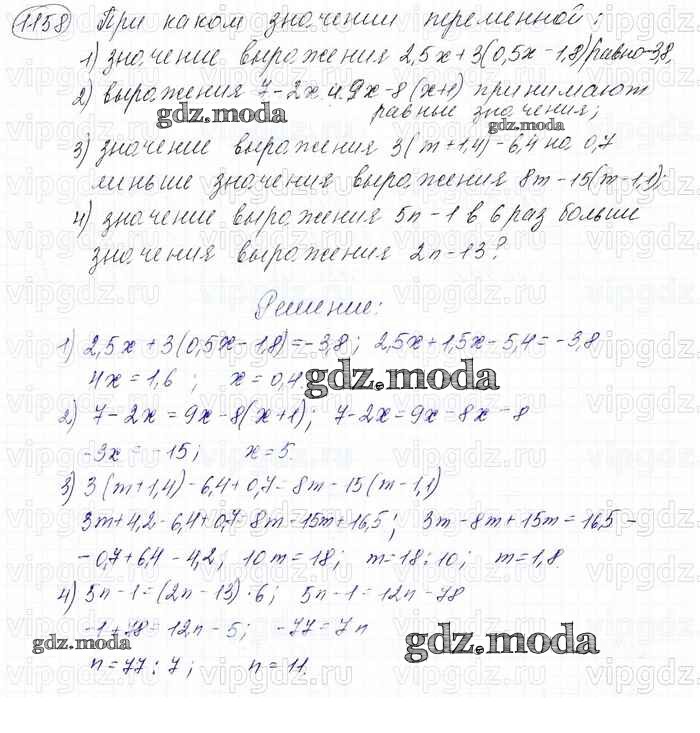 1158 При каком значении переменной:
1) значение выражения 2,5x+3(0,5x-1,8) равно -3,8,
2) выражения 7-2x и 9x-8(x+1) принимают
gdz.moda равные значения; gdz.moda
3) значение выражения 3(m+1,4)-6,4 на 0,7
меньше значения выражения 8m-15(m-1,1);
4) значение выражения 5n-1 в 6 раз больше
значения выражения 2n-13?
Решение:
1) 2,5x+3(0,5x-1,8)=-3,8; 2,5x+1,5x-5,4=-3,8
4x=1,6; x=0,4. gdz.moda
2) 7-2x=9x-8(x+1); 7-2x=9x-8x-8
-3x=-15; x=5.
3) 3(m+1,4)-6,4+0,7=8m-15(m-1,1)
3m+4,2-6,4+0,7=8m-15m+16,5; 3m-8m+15m=16,5-
-0,7+6,4-4,2; 10m=18; m=18:10; m=1,8.
4) 5n-1=(2n-13)·6; 5n-1=12n-78
-1+78=12n-5; -77=7n
gdz.moda gdz.moda
n=77:7; n=11.